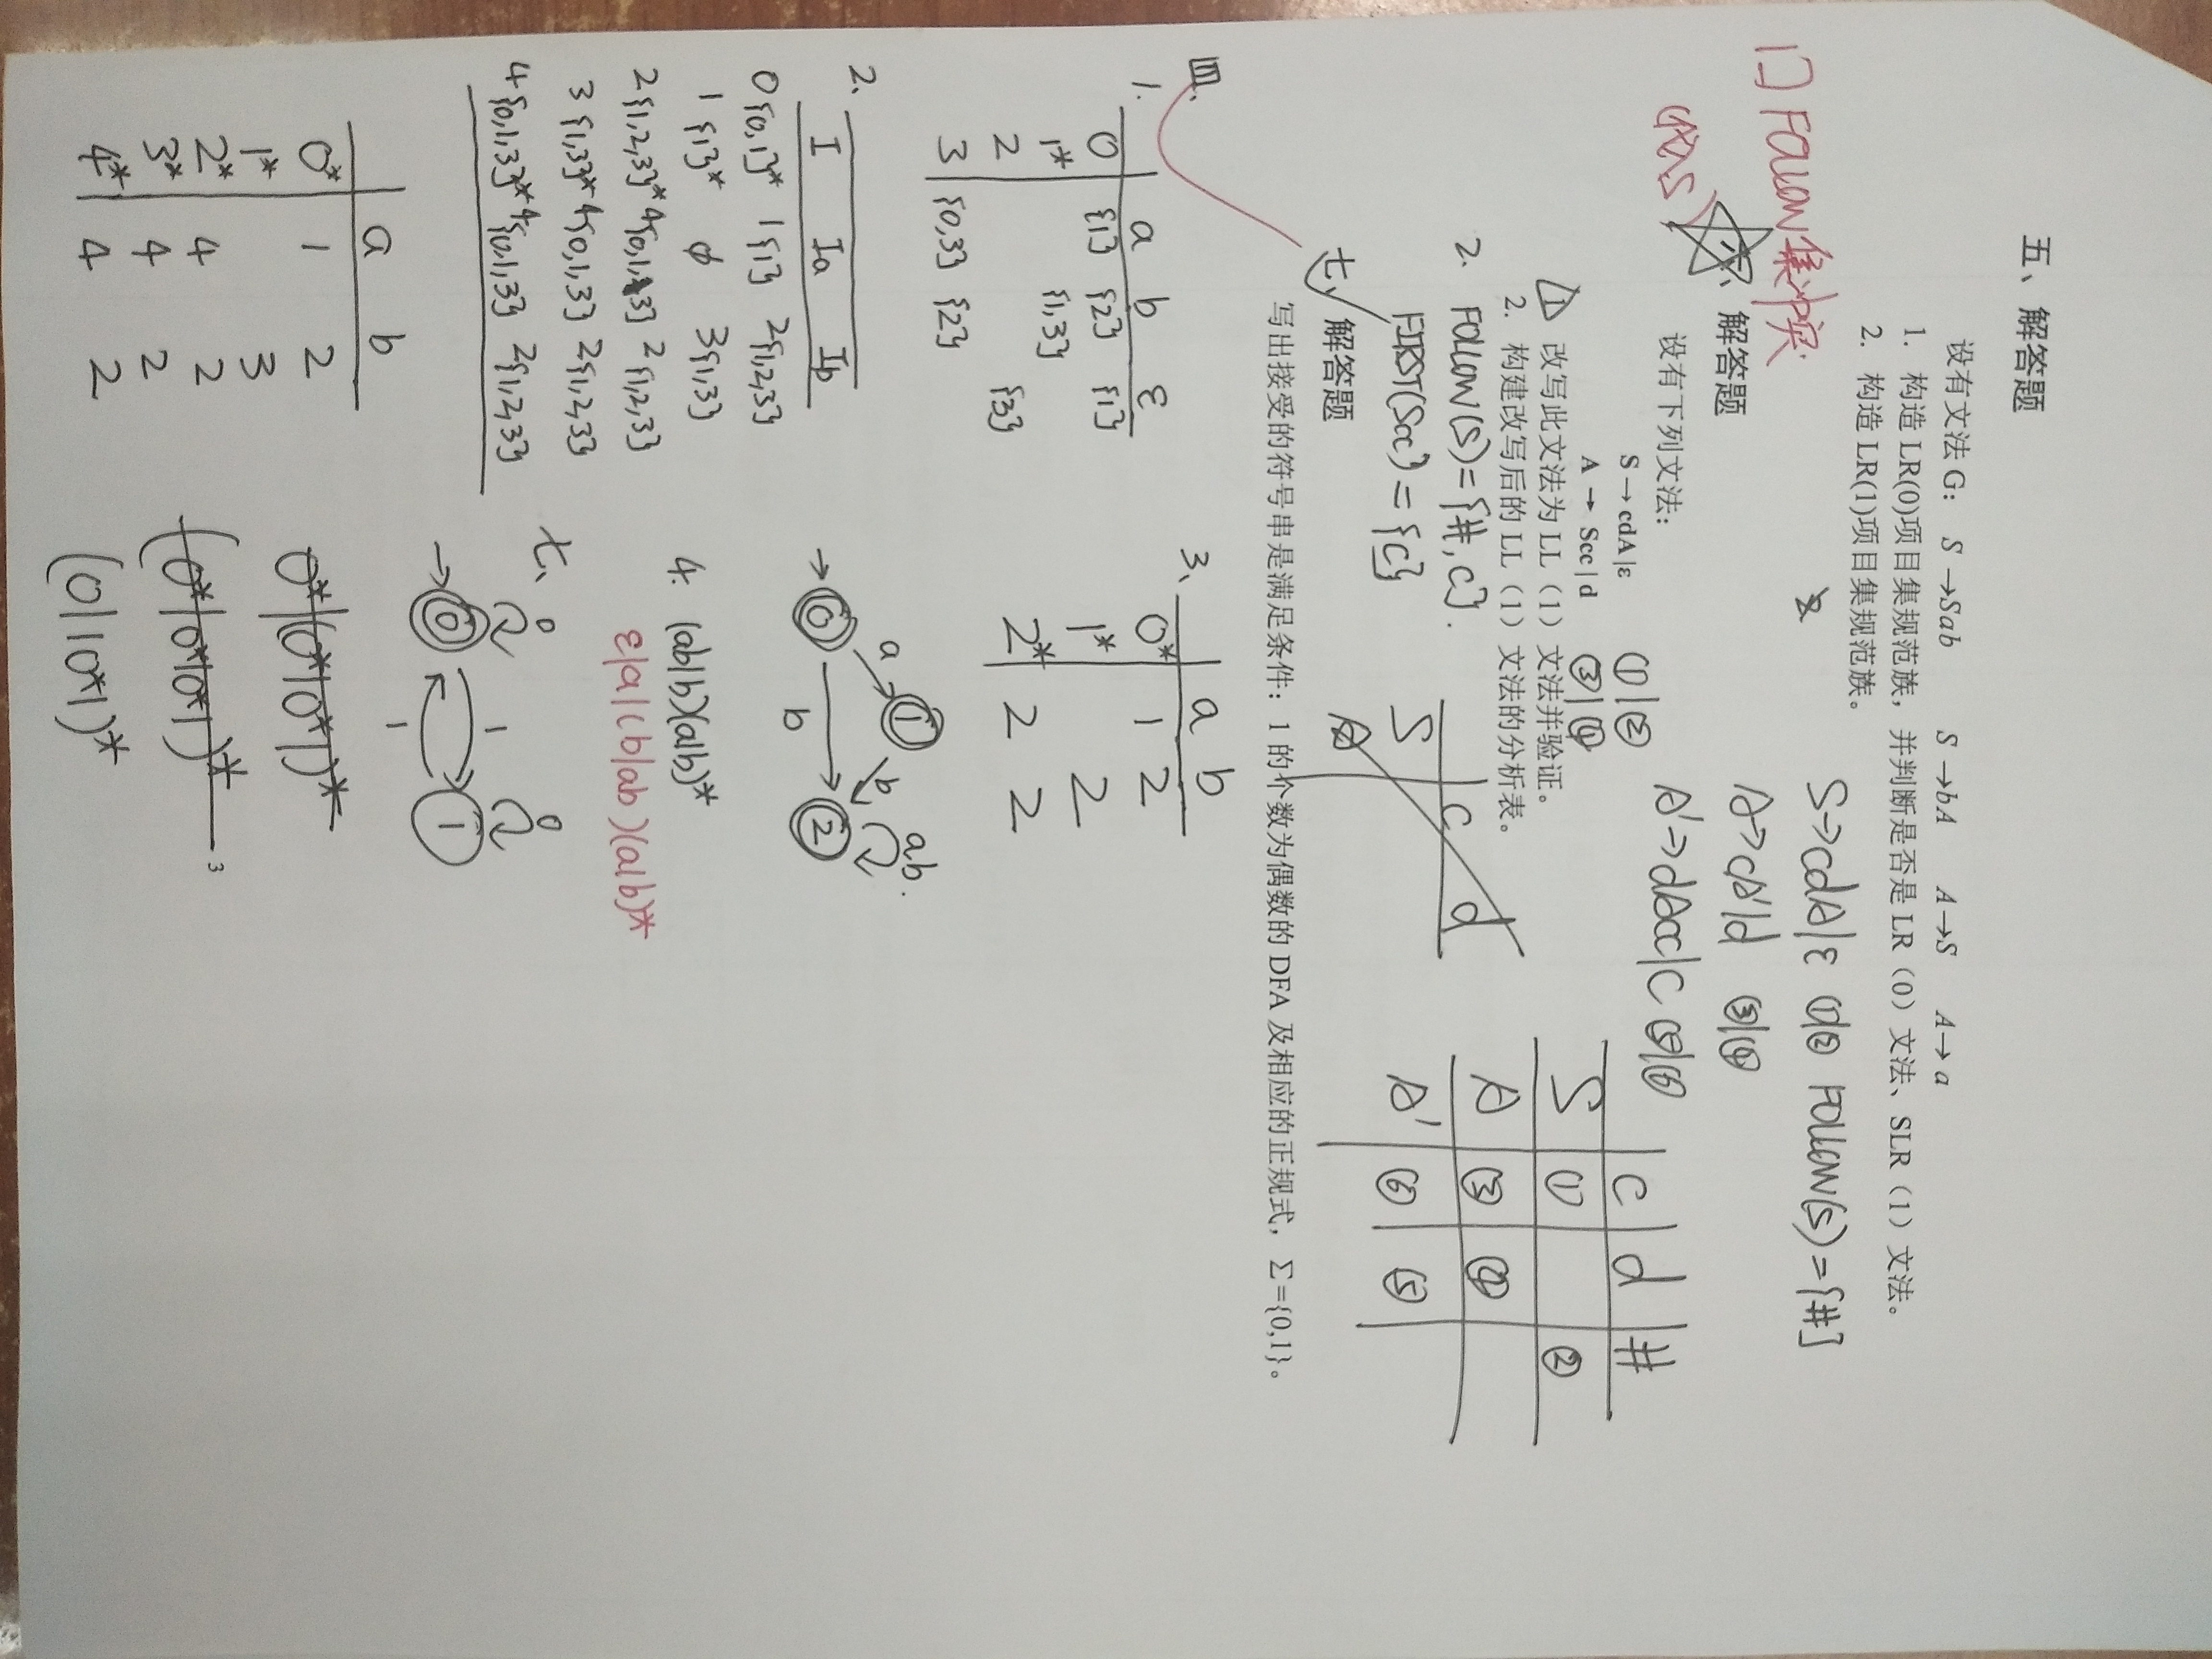 五、解答题
设有文法 G: S →Sab S →bA A→S A→a
1. 构造 LR(0)项目集规范族，并判断是否是 LR（0）文法、SLR（1）文法。
2. 构造 LR(1)项目集规范族。
Follow集冲突
解答题
设有下列文法：
S → cdA | ε ①|②
A → Scc | d ③|④
1 改写此文法为 LL（1）文法并验证。
2. 构建改写后的 LL（1）文法的分析表。
S→cdA|ε ①|② FOLLOW(S)={#}
A→cA'|d ③|④
A'→dAcc|c ⑤|⑥
c d #
S ① ②
A ③ ④
A' ⑥ ⑤
2. FOLLOW(S)={#,c}.
FIRST(Scc)={c}
c d
S
A
七、解答题
写出接受的符号串是满足条件：1 的个数为偶数的 DFA 及相应的正规式，Σ={0,1}。
四、
1.
a b ε
0 {1} {2} {1}
1* {1,3}
2 {3}
3 {0,3} {2}
2、
I Ia Ib
0{0,1}* 1{1} 2{1,2,3}
1 {1}* ϕ 3{1,3}
2{1,2,3}* 4{0,1,3} 2{1,2,3}
3 {1,3}* 4{0,1,3} 2{1,2,3}
4{0,1,3}* 4{0,1,3} 2{1,2,3}
a b
0* 1 2
1* 3
2* 4 2
3* 4 2
4* 4 2
3、
a b
0* 1 2
1* 2
2* 2 2
0 a 1 b 2 ab.
b
4. (ab|b)(a|b)*
ε|a|(b|ab)(a|b)*
七、
0 0
0 1 1
1
0*|(0*10*1)*
(0*|0*10*1)*
(0|10*1)*
3